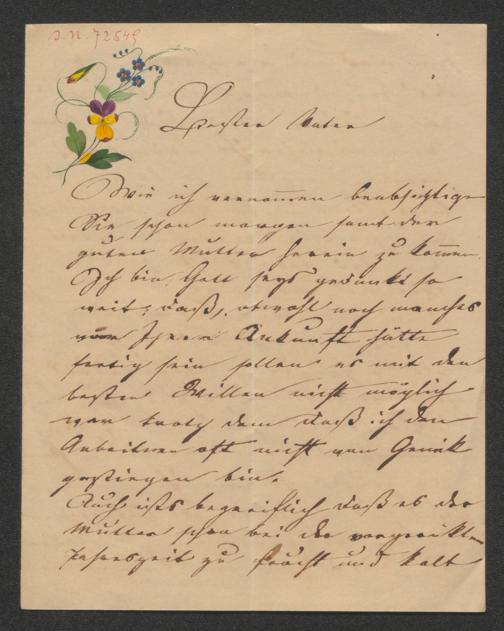 I. N. 72549
Bester Vater
Wie ich vernommen beabsichtigen
Sie schon morgen samt der
guten Mutter herein zu kommen.
Ich bin, Gott seys gedankt so
weit, daß, obwohl noch manches
vor Ihrer Ankunft hätte
fertig sein sollen es mit dem
besten Willen nicht möglich
war trotz dem daß ich den
Arbeitern oft nicht vom Genick
gestiegen bin.
Auch ists begreiflich daß es der
Mutter schon bei der vorgerükten
Jahreszeit zu feucht und kalt